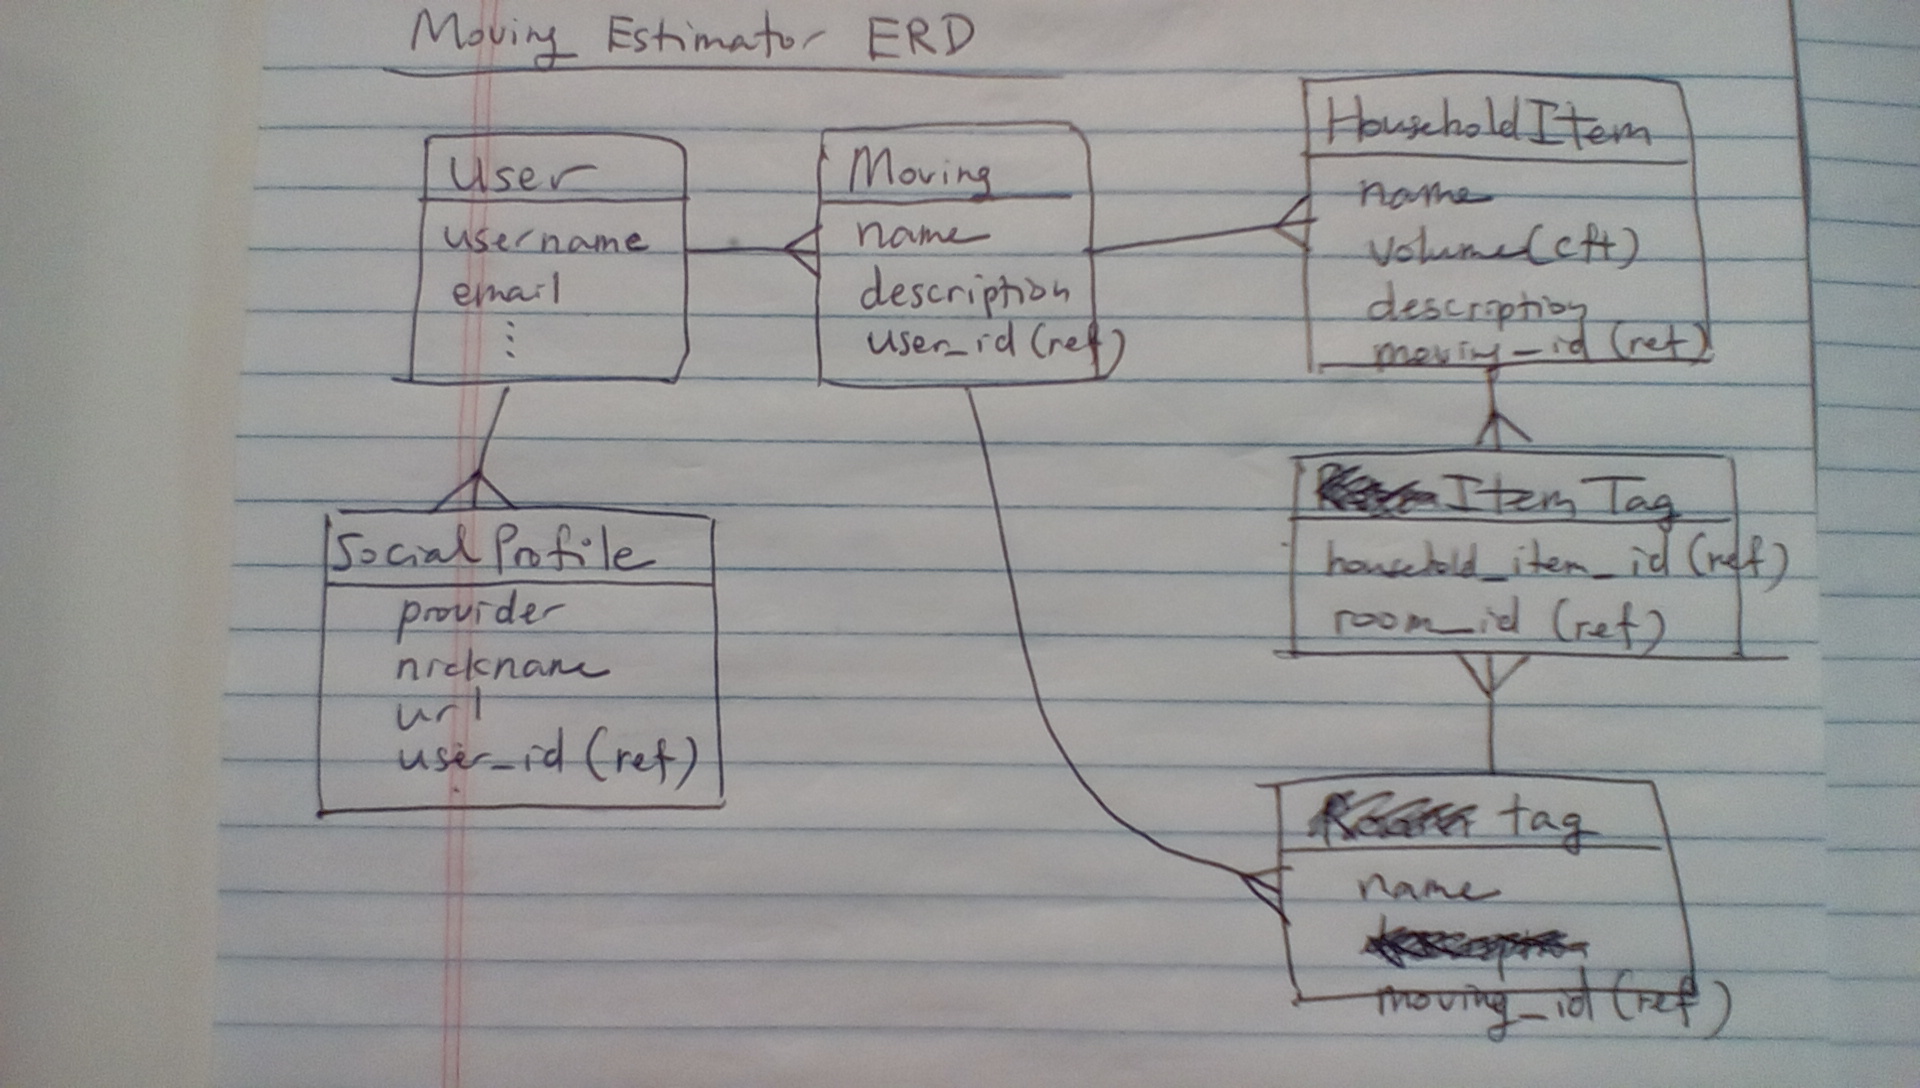 Moving Estimator ERD
User
username
email
⋮
Moving
name
description
user_id (ref)
HouseholdItem
name
volume(cft)
description
moving_id (ref)
Social Profile
provider
nickname
url
user_id (ref)
Item Tag
household_item_id (ref)
room_id (ref)
tag
name
moving_id (ref)